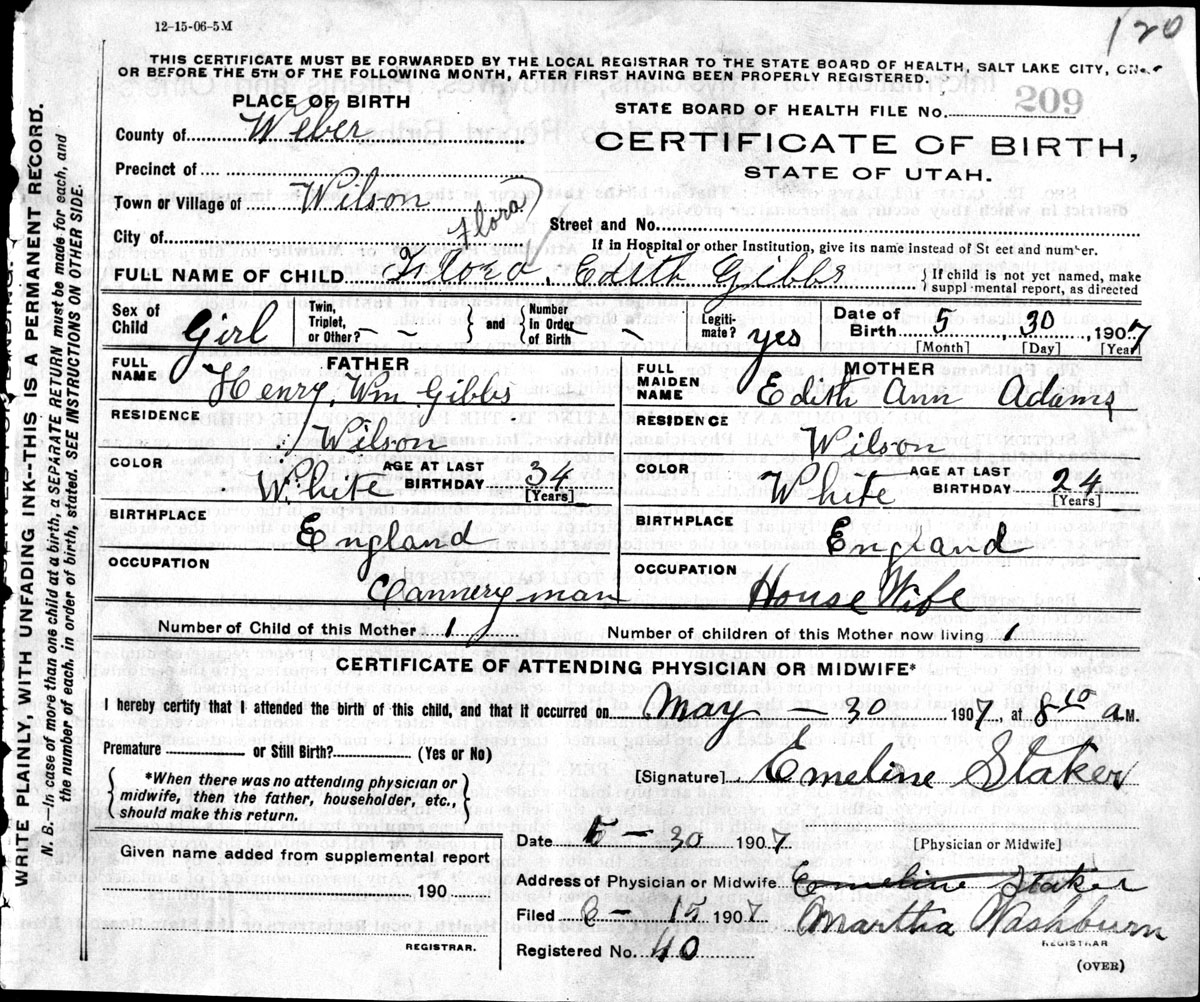 12-15-06-5M
120
THIS CERTIFICATE MUST BE FORWARDED BY THE LOCAL REGISTRAR TO THE STATE BOARD OF HEALTH, SALT LAKE CITY, ON
OR BEFORE THE 5TH OF THE FOLLOWING MONTH, AFTER FIRST HAVING BEEN PROPERLY REGISTERED.
PLACE OF BIRTH
STATE BOARD OF HEALTH FILE No. 209
County of Weber
CERTIFICATE OF BIRTH,
STATE OF UTAH.
Precinct of
Town or Village of Wilson
Flora
Street and No.
City of
If in Hospital or other Institution, give its name instead of St eet and number.
FULL NAME OF CHILD Flora, Edith Gibbs { If child is not yet named, make
suppl mental report, as directed
Sex of Child Girl Twin, Triplet, or Other? – } and { Number in Order of Birth – Legiti-mate? yes Date of Birth 5 30 1907
[Month] [Day] [Year]
FULL NAME FATHER Henry, Wm Gibbs
FULL MAIDEN NAME MOTHER Edith Ann Adams
RESIDENCE Wilson
RESIDENCE Wilson
COLOR White AGE AT LAST BIRTHDAY 34 [Years]
COLOR White AGE AT LAST BIRTHDAY 24 [Years]
BIRTHPLACE England
BIRTHPLACE England
OCCUPATION Cannery man
OCCUPATION House Wife
Number of Child of this Mother 1
Number of children of this Mother now living 1
CERTIFICATE OF ATTENDING PHYSICIAN OR MIDWIFE*
I hereby certify that I attended the birth of this child, and that it occurred on May 30 1907, at 8 10 a M.
Premature — or Still Birth? — (Yes or No)
{ *When there was no attending physician or
midwife, then the father, householder, etc.,
should make this return. }
[Signature] Emeline Staker
Date 5 – 30 1907 [Physician or Midwife]
Given name added from supplemental report
190
Address of Physician or Midwife Emeline Staker
Filed 6 – 15 1907 Martha Washburn
REGISTRAR
REGISTRAR.
Registered No. 40
(OVER)
WRITE PLAINLY, WITH UNFADING INK--THIS IS A PERMANENT RECORD.
N. B.—In case of more than one child at a birth, a SEPARATE RETURN must be made for each, and
the number of each, in order of birth, stated. SEE INSTRUCTIONS ON OTHER SIDE.